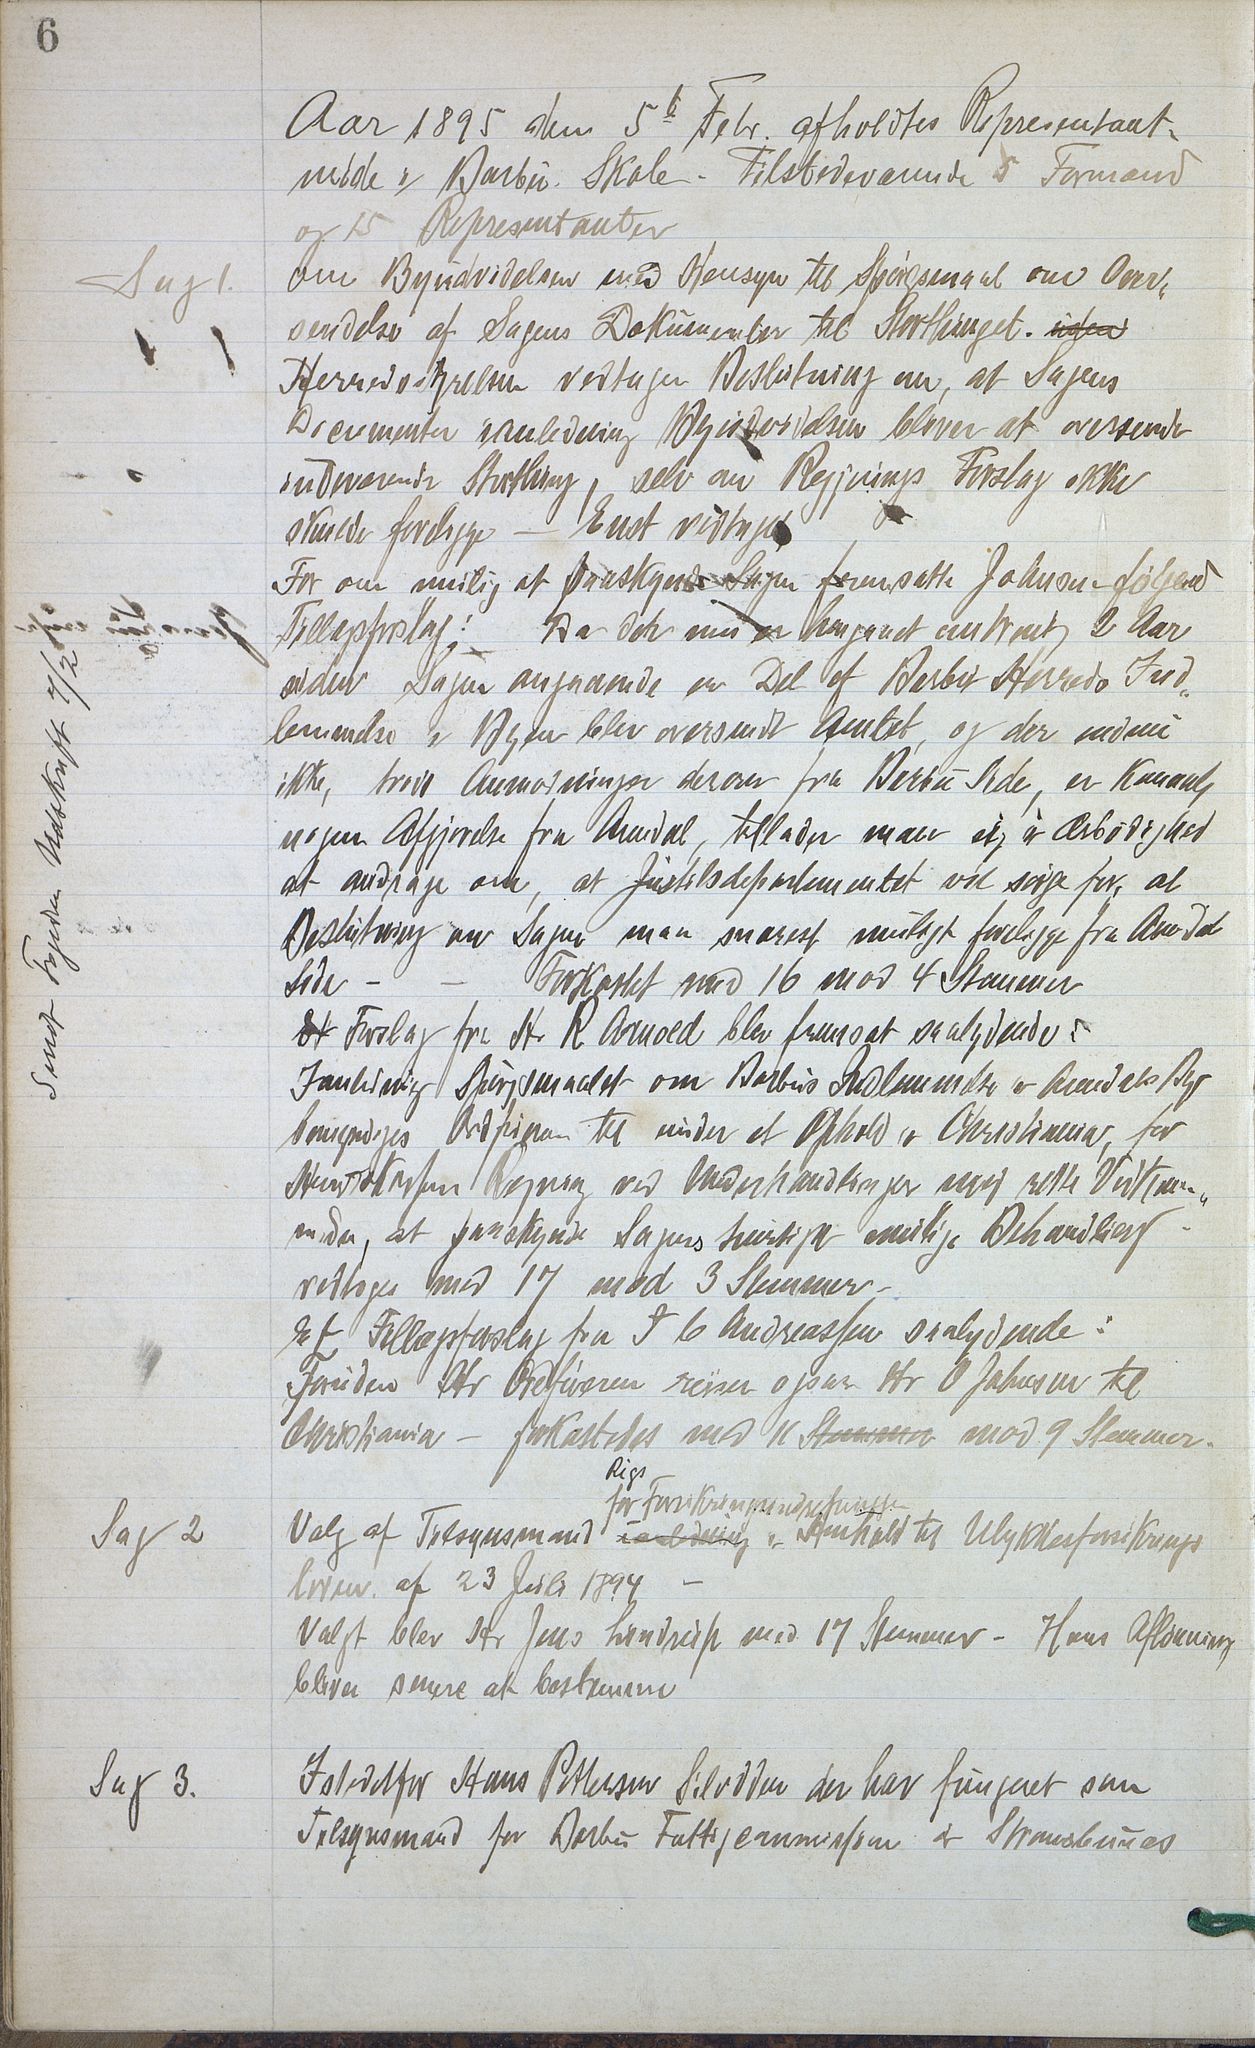 6
Aar 1895 den 5te Febr. afholdtes Representant-
møde i Barbu Skole - Tilstedeværende 5 Formænd
og 15 Representanter
Sag 1. om Byudvidelsen med Hensyn til Spørgsmaal om Over-
sendelse af Sagens Dokumenter til Storthinget. uden
Herredsstyrelsen vedtager Beslutning om, at Sagens
Documenter i anledning Byudvidelsen bliver at oversende
indeværende Storthing, selv om Regjerings Forslag ikke
skulde forligge — Enst vedtaget
For om mulig at paaskynde Sagen fremsatte Johnsen følgend
Tillægsforslag: Da det nu er hengaaet omtrent 2 Aar
siden Sagen angaaende en Del af Barbu Herreds Ind-
lemmelse i Byen blev oversendt Amtet, og der endnu
ikke, trods Anmodninger derover fra Barbu Side, er kommet
nogen Afgjørelse fra Arendal, tillader man sig i Ærbødighed
at andrage om, at Justitsdepartementet vil sørge for, at
Beslutning om Sagen maa snarest muligt foreligge fra Arendal
Side - - Forkastet med 16 mod 4 Stemmer
Et Forslag fra Hr R Arnold blev fremsat saalydende:
I anledning Spørgsmaalet om Barbus Indlemmelse i Arendals By
bemyndiges Ordføreren til under et Ophold i Christiania, for
Herredskassens Regning ved Underhandlinger med rette Vedkom-
mende, at paaskynde Sagens hurtigst mulige Behandling -
vedtoges med 17 mod 3 Stemmer -
Et Tillægsforslag fra J C Andreassen saalydende:
Foruden Hr Ordføreren reiser ogsaa Hr O Johnsen til
Christiania - forkastedes med 11 Stemmer mod 9 Stemmer.
Rigs
for Forsikringsindretningen
Sag 2 Valg af Tilsynsmand i anledning i Henhold til Ulykkesforsikrings
loven af 23 Juli 1894 -
Valgt blev Hr Jens Lindrup med 17 Stemmer - Hans Aflønning
bliver senere at bestemme
Sag 3. Istedetfor Hans Pettersen Silodden der har fungeret som
Tilsynsmand for Barbu Fattigcommission i Strømsbuaas
Sendt Fogden Udskrift 7/2